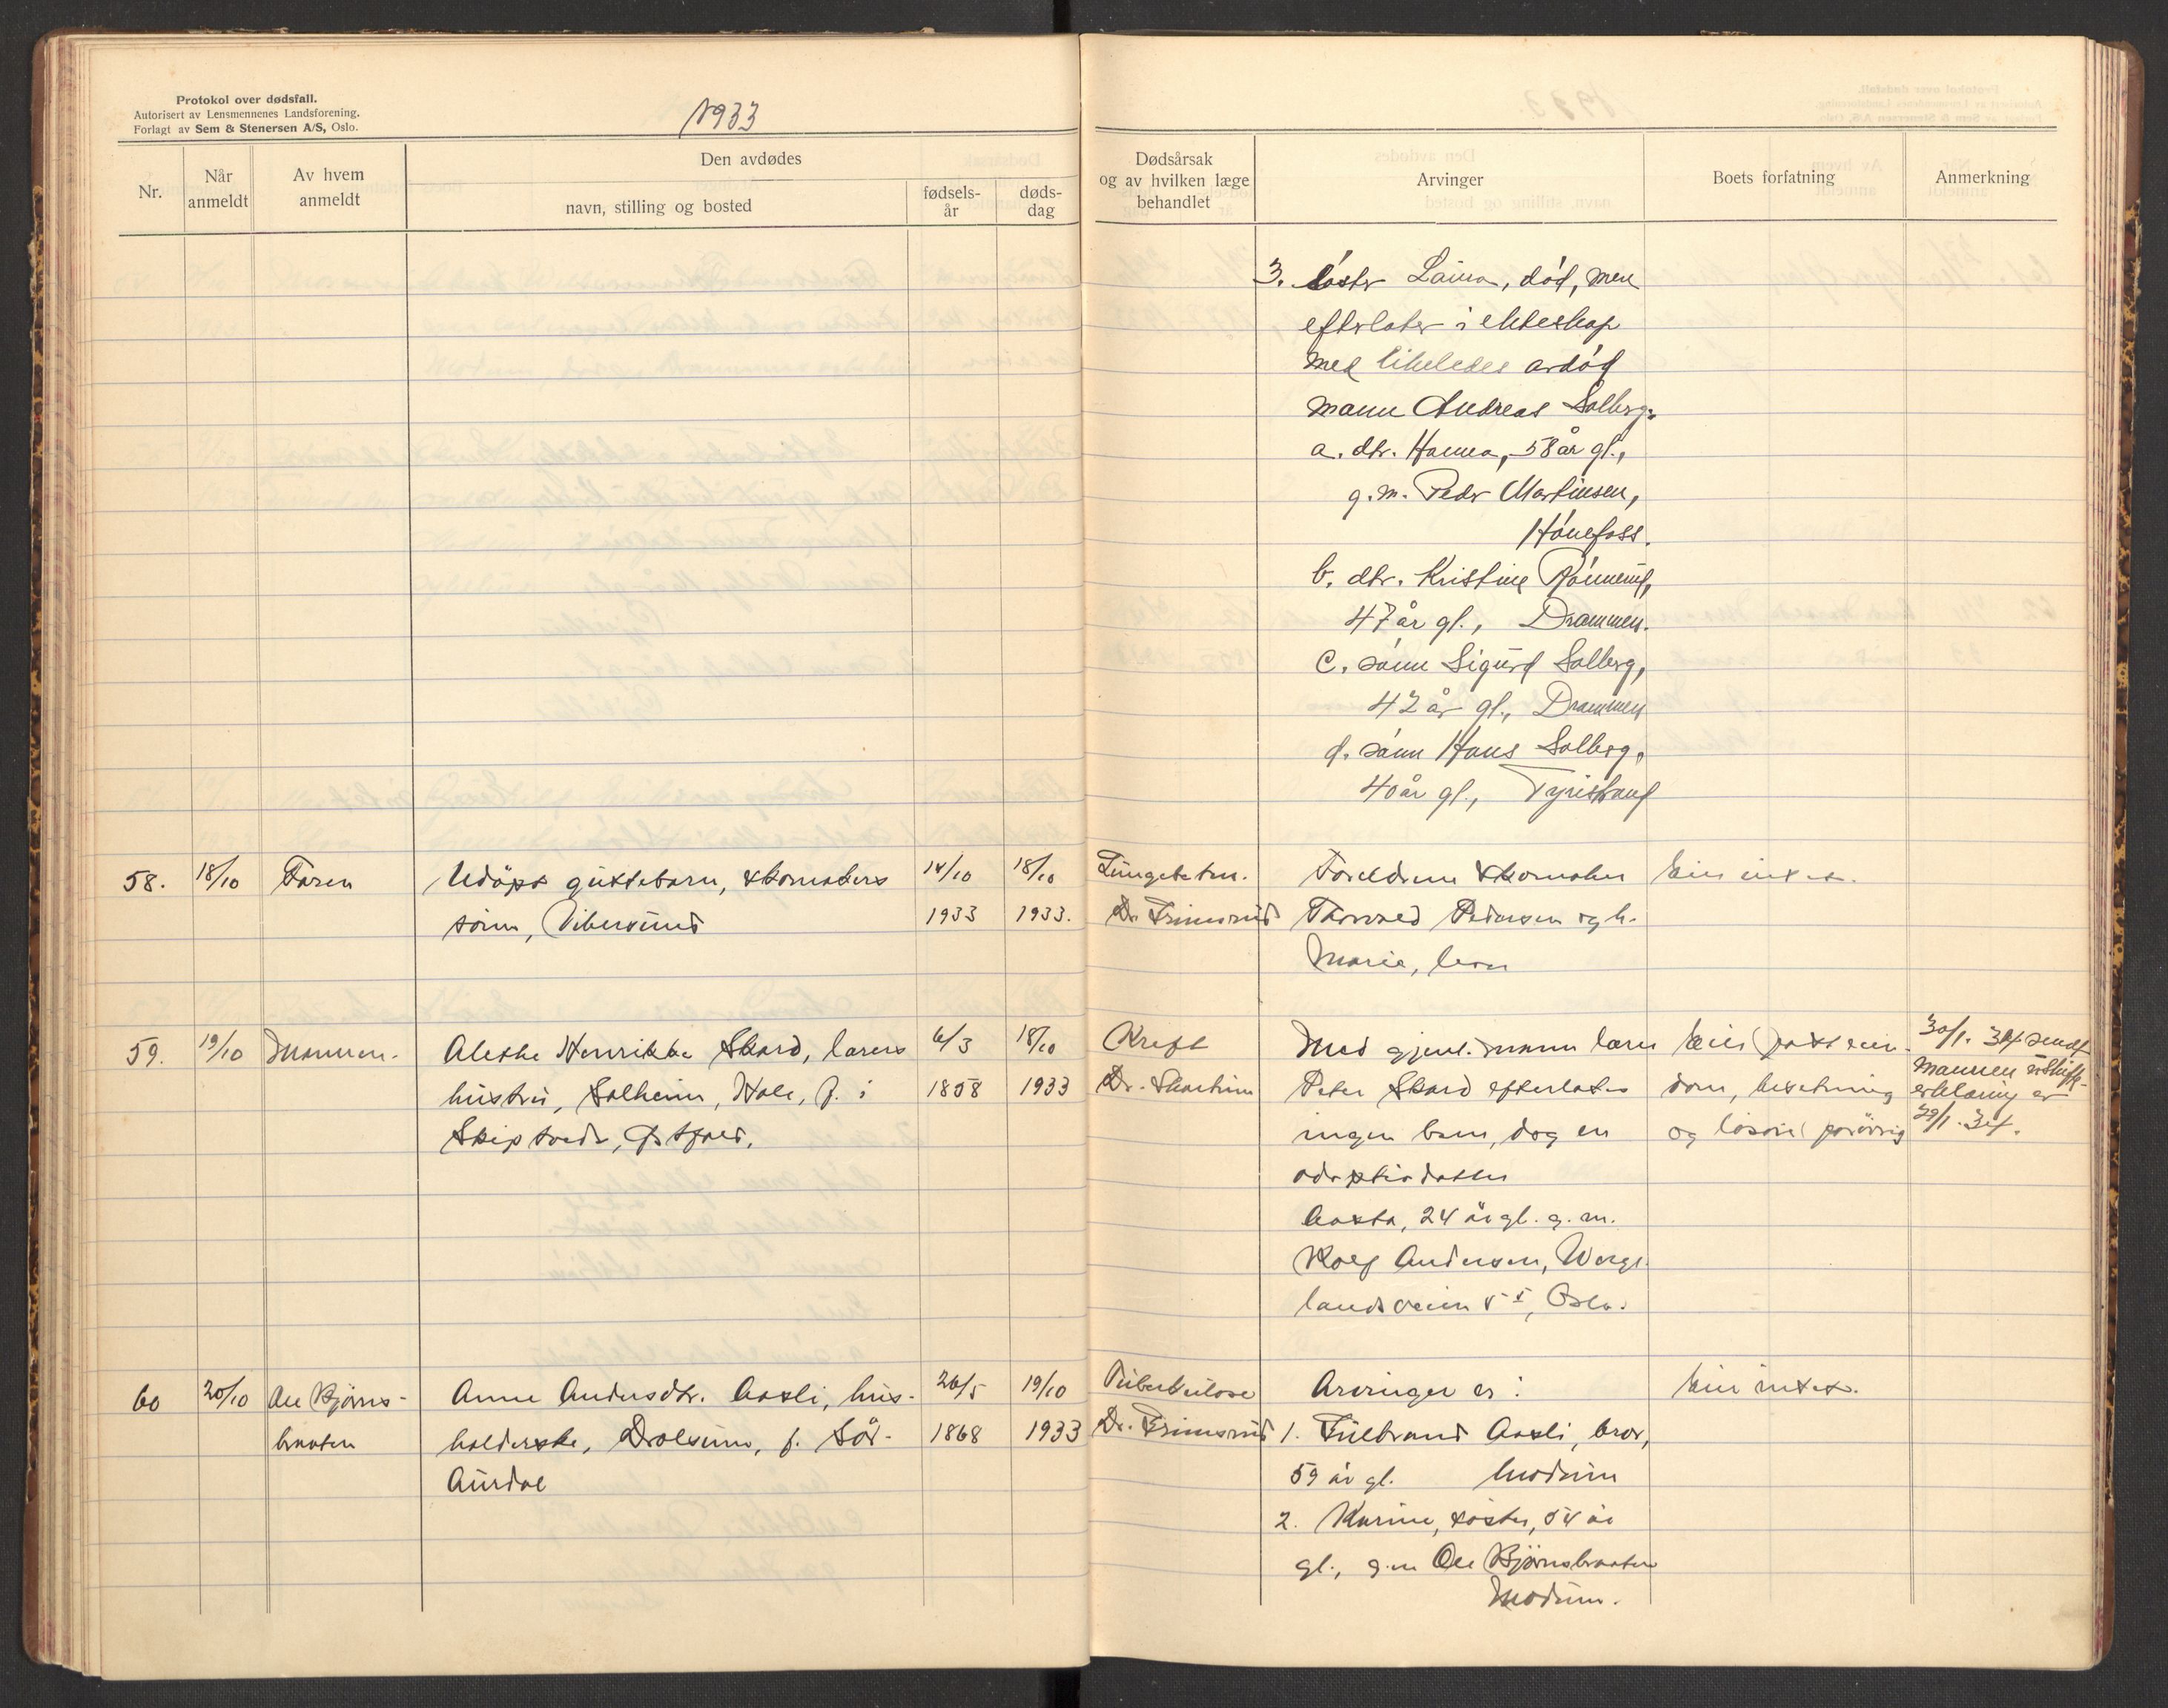 Protokol over dødsfall.
Autorisert av Lensmennenes Landsforening.
Forlagt av Sem & Stenersen A/S, Oslo.
1933
Nr.
Når anmeldt
Av hvem anmeldt
Den avdødes
navn, stilling og bosted
fødsels-år
døds-dag
Dødsårsak og av hvilken læge behandlet
Arvinger
Boets forfatning
Anmerkning
3. søster Laura, död, men
efterlater i ekteskap
med likeledes avdöd
mann Andreas Solberg:
a. dtr. Hanna, 58 år gl.,
g. m. Peder Martinsen,
Hönefoss.
b. dtr. Kristine
47 år gl., Drammen.
c. sönn Sigurd Solberg,
42 år gl., Drammen
d. sönn Hans Solberg,
40 år gl., Tyristrand
58. 18/10 Faren Udöpt guttebarn, skomakers 14/10 18/10 Lungebeten. Foreldrene skomaker Eier intet.
sönn, Vikersund 1933 1933. Dr. Thorvald Pedersen og h.
Marie, lever
59. 19/10 Mannen. Aleske Henrikke Skard, lærers 6/3 18/10 Kreft Med gjenl. mann lærer Eier fast eien- 30/1. 34 sendt
hustru, Solheim, Hole, f. i 1858 1933 Dr. Peter Skard efterlates dom, besetning mannen
Skiptvedt, Östfold. ingen barn, dog en og lösöre forövrig erklæring av
adoptivdatter 29/1. 34.
Aasta, 24 år gl. g. m.
Rolf Andersen, Werge-
landsveien 5 I, Oslo.
60 20/10 Ole Björns- Anne Andersdtr. Aasli, hus- 26/5 19/10 Tuberkulose Arvinger er: Eier intet.
braaten holderske, Drolsum, f. Sör- 1868 1933 Dr. 1. Gulbrand Aasli, bror,
Aurdal 59 år gl. Modum
2. Karine, söster, 54 år
gl., g. m Ole Björnsbraaten
Modum.